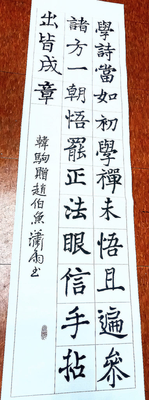 學詩當如初學禪未悟且遍參
諸方一朝悟罷正法眼信手拈
出皆成章
韓駒贈趙伯魚 瀟雨书